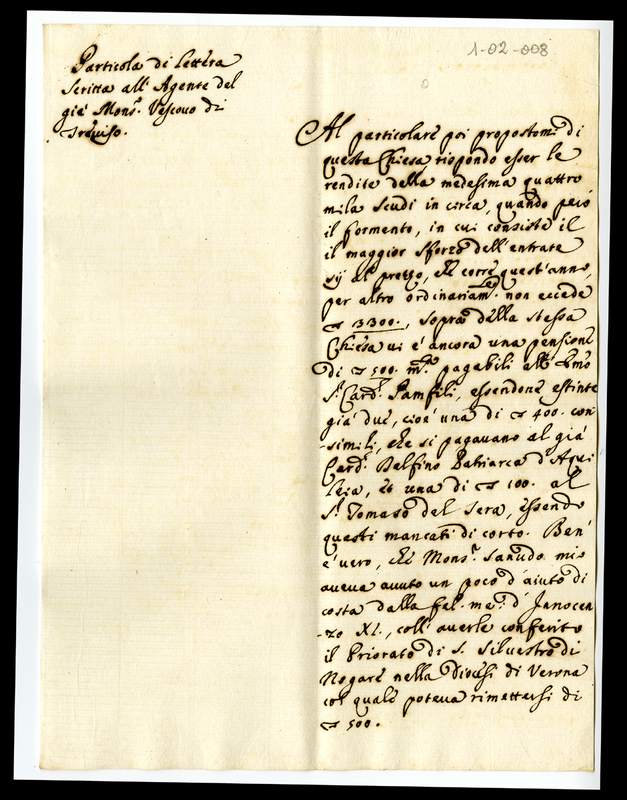 1-02-008
Particola di lettera
scritta all' Agente del
già Mons.r Vescovo di
Treviso.
Al particolare poi propostomi di
questa Chiesa rispondo esser le
rendite della medesima quattro
mila scudi in circa, quando però
il formento, in cui consiste il
il maggior sforzo dell' entrate
sij al prezzo, che corre quest' anno,
per altro ordinariam.te non eccede
3300., sopra della stessa
Chiesa vi è ancora una pensione
di 500. pagabili all'
S.r Card.l Pamfili, essendone estinte
già due, cioè una di 400. con-
-simili, che si pagavano al già
Card.l Delfino Patriarca d'Aqui
leia, et una di 100. al
S.r Tomaso del Sera, essendo
questi mancati di corto. Ben
è vero, che Mons.r Sanudo mio
aveva avuto un poco d'aiuto di
costa dalla fel. me. d' Innocen
-zo XI., coll' averle conferito
il Priorato di S. Silvestro di
Nogare nella Diocesi di Verona
col quale poteva rimettersi di
500.